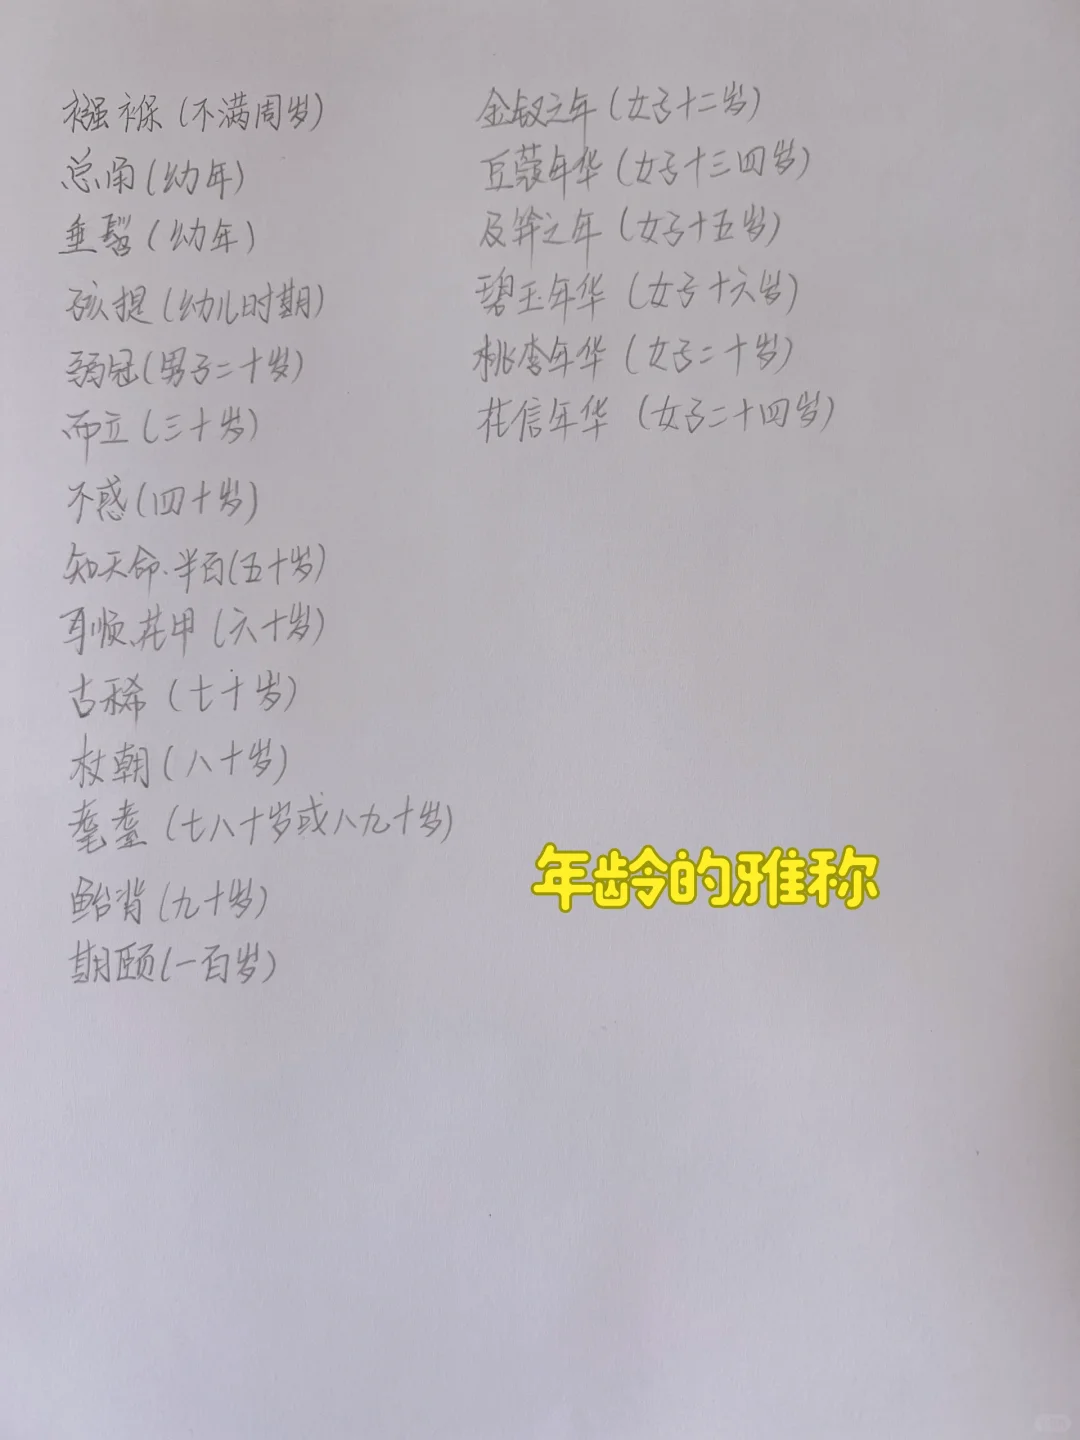 襁褓（不满周岁）
总角（幼年）
垂髫（幼年）
孩提（幼儿时期）
弱冠（男子二十岁）
而立（三十岁）
不惑（四十岁）
知天命、半百（五十岁）
耳顺、花甲（六十岁）
古稀（七十岁）
杖朝（八十岁）
耄耋（七八十岁或八九十岁）
鲐背（九十岁）
期颐（一百岁）
金钗之年（女子十二岁）
豆蔻年华（女子十三四岁）
及笄之年（女子十五岁）
碧玉年华（女子十六岁）
桃李年华（女子二十岁）
花信年华（女子二十四岁）
年龄的雅称